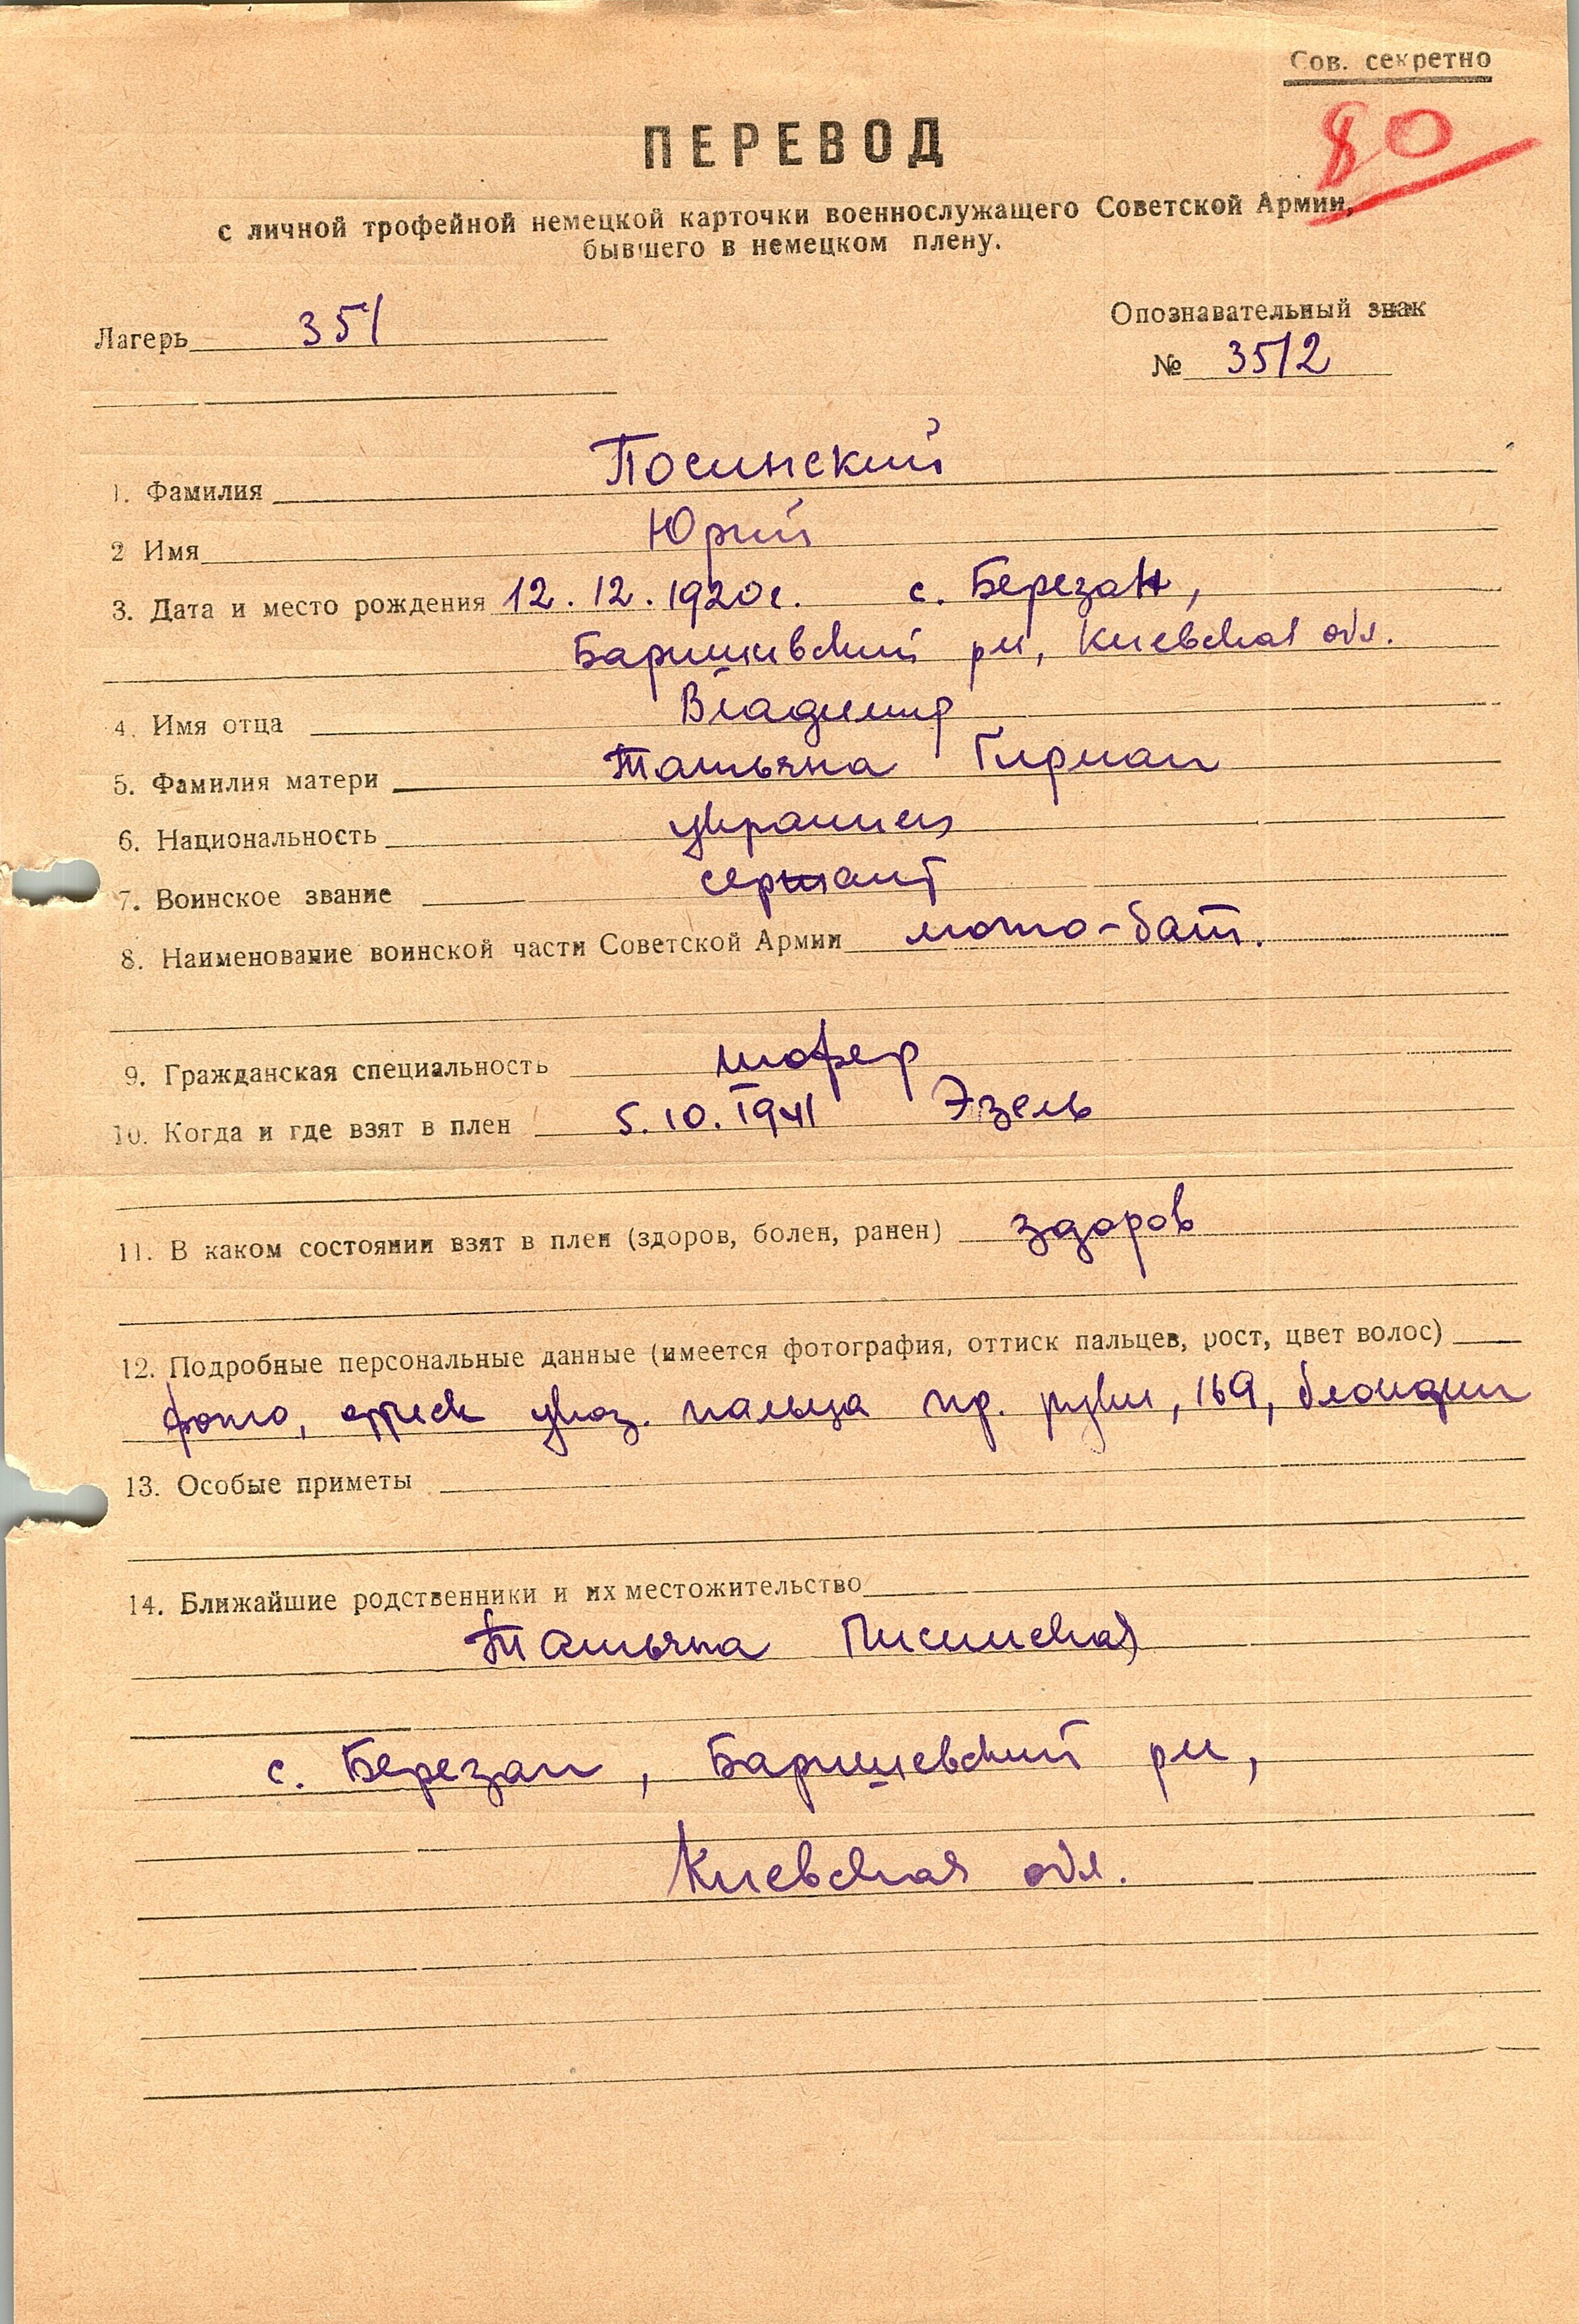 Сов. секретно
80
ПЕРЕВОД
с личной трофейной немецкой карточки военнослужащего Советской Армии,
бывшего в немецком плену.
Лагерь 351
Опознавательный знак
№ 3512
1. Фамилия Посинский
2 Имя Юрий
3. Дата и место рождения 12.12.1920г. с. Березан,
Баришивский рн, Киевская обл.
4. Имя отца Владимир
5. Фамилия матери Татьяна Гирман
6. Национальность украинец
7. Воинское звание сержант
8. Наименование воинской части Советской Армии мото-бат.
9. Гражданская специальность шофер
10. Когда и где взят в плен 5.10.1941 Эзель
11. В каком состоянии взят в плен (здоров, болен, ранен) здоров
12. Подробные персональные данные (имеется фотография, оттиск пальцев, рост, цвет волос)
фото, оттиск указ. пальца пр. руки, 169, блондин
13. Особые приметы
14. Ближайшие родственники и их местожительство
Татьяна Писинская
с. Березан, Баришевский рн,
Киевская обл.